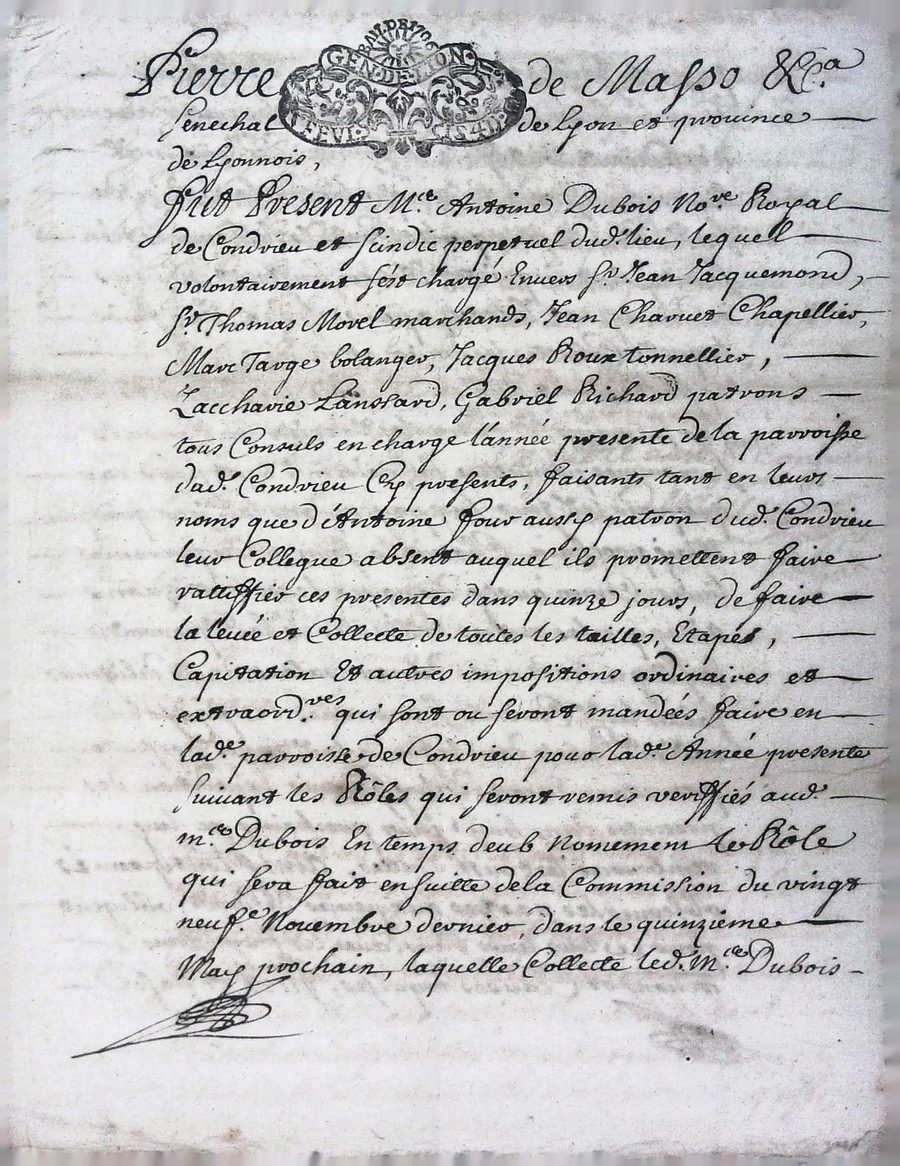 BAU.DE.1706
GEN.DE.LYON
Pierre de Masso &Ca.
Senechal de Lyon et prouince
de Lyonnois,
fut Present Mce. Antoine Dubois Nore. Royal
de Condrieu et Scindic perpetuel dud. lieu, lequel
volontairement s'ést chargé Enuers Sr. Jean Jacquemond,
Sr. Thomas Morel marchands, Jean Charuet Chapellier,
Marc Targe bolanger, Jacques Roux tonnellier,
Zaccharie Lanssard, Gabriel Richard patrons
tous Consuls en charge l'année presente de la parroisse
dud. Condrieu Cy presents, faisants tant en leurs
noms que d'Antoine four aussy patron dud. Condrieu
leur Collegue absent auquel ils promettent faire
rattiffier ces presentes dans quinze jours, de faire
la leuée et Collecte de toutes les tailles, Etapes,
Capitation Et autres impositions ordinaires et
extraord.res qui sont ou seront mandées faire en
lade. parroisse de Condrieu pour lade. Année presente
suiuant les Rôles qui seront remis veriffiés aud.
mce. Dubois En temps deub nomement le Rôle
qui sera fait ensuitte de la Commission du vingt
neuf.e Nouembre dernier, dans le quinzieme
May prochain, laquelle Collecte led. Mce. Dubois